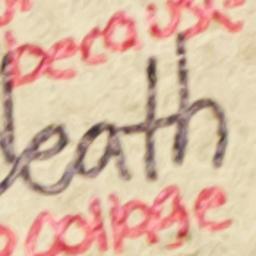 because
death
collage